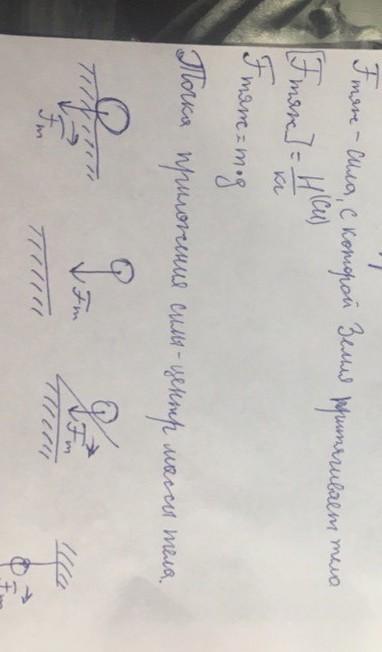 Fтяж - сила, с которой Земля притягивает тело
[Fтяж] = Н/кг (СИ)
Fтяж = m·g
Точка приложения силы - центр массы тела.
Fт
Fт
Fт
Fт